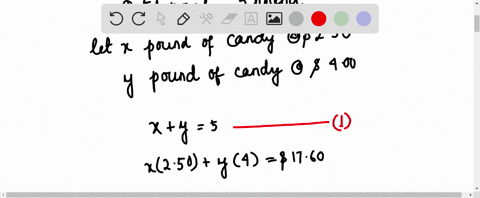 let x pound of candy @ $2.50
y pound of candy @ $4.00
x + y = 5 (1)
x(2.50) + y(4) = $17.60